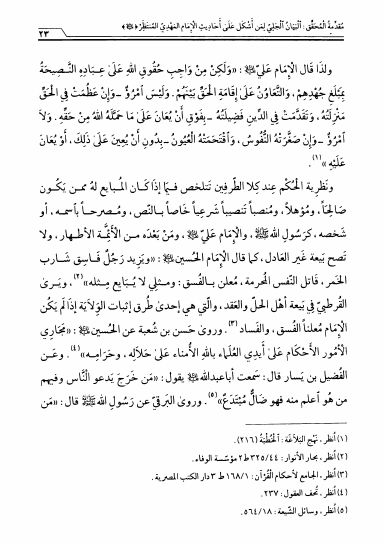 مقدمة المحقق : البيان الجلي لمن أشكل على أحاديث الإمام المهدي المنتظر (ﷺ) ٢٣
ولذا قال الإمام عليّ : «وَلَكِنْ مِنْ وَاجِبِ حُقُوقِ اللهِ عَلَىٰ عِبَادِهِ النَّصِيحَةُ
بِمَبْلَغِ جُهْدِهِمْ، وَالتَّعَاوُنُ عَلَىٰ إِقَامَةِ الْحَقِّ بَيْنَهُمْ. وَلَيْسَ امْرُؤٌ ـ وَإِنْ عَظُمَتْ فِي الْحَقِّ
مَنْزِلَتُهُ، وَتَقَدَّمَتْ فِي الدِّينِ فَضِيلَتُهُ ـ بِفَوْقِ أَنْ يُعَانَ عَلَىٰ مَا حَمَّلَهُ اللهُ مِنْ حَقِّهِ. وَلَا
امْرُؤٌ ـ وَإِنْ صَغَّرَتْهُ النُّفُوسُ، وَاقْتَحَمَتْهُ الْعُيُونُ ـ بِدُونِ أَنْ يُعِينَ عَلَىٰ ذَلِكَ، أَوْ يُعَانَ
عَلَيْهِ»(١).
ونظرية الحُكْم عند كلا الطرفين تتلخص فيما إذا كان المبايع له ممن يكون
صالحاً، ومؤهلاً، ومنصباً تنصيباً شرعياً خاصاً بالنّص، ومصرحاً بأسمه، أو
شخصه، كرَسُول اللهِ ﷺ، والإمام عَليّ ، ومَنْ بَعْدَه من الأئمَّة الأطهار، ولا
تصح بيعة غير العادل، كما قال الإمام الحُسين : «ويزيد رَجُلٌ فاسق شارب
الخمر، قاتل النّفس المحرمة، معلن بالفسق: ومثلي لا يُبايع مثله»(٢)، ويرىٰ
القرطبيّ في بيعة أهل الحلّ والعقد، والّتي هي إحدى طرق إثبات الوِلاية إذا لم يكُن
الإمام مُعلناً الفسق، والفساد(٣). وروىٰ حَسن بن شعبة عن الحُسين : «مجَاري
الأمُور الأحْكَام عَلىٰ أيدي العُلمَاء باللهِ الأمناء عَلىٰ حَلاَله، وحرَامِه»(٤). وعَن
الفُضيل بن يَسار قال: سَمعت أباعبدالله يقول: «مَن خَرَجَ يَدعو النّاس وفيهم
مَن هُو أعلم منه فهو ضالٌّ مُبْتَدِعٌ»(٥). وروىٰ البَرقيّ عن رَسُولِ الله ﷺ قال: «مَن
(١) اُنظر، نهج البَلاَغة: الخُطْبَة (٢١٦).
(٢) اُنظر، بحار الأنوار: ٤٤/٣٢٥ ط ٢ مؤسّسة الوفاء.
(٣) اُنظر، الجامع لأحكام القُرآن: ١/١٦٨ ط ٣ دار الكتب المصرية.
(٤) اُنظر، تحف العقول: ٢٣٧.
(٥) اُنظر، وسائل الشّيعة: ١٨/٥٦٤.